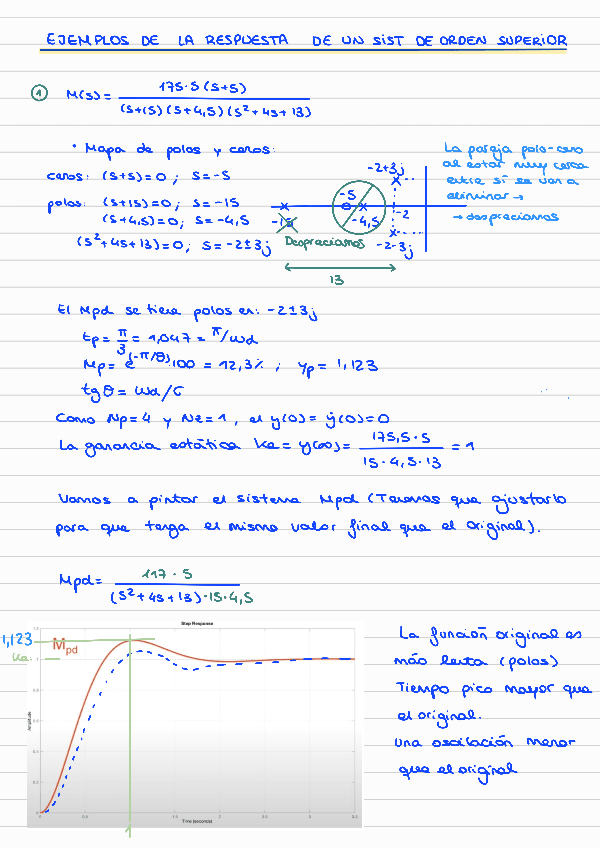 EJEMPLOS DE LA RESPUESTA DE UN SIST DE ORDEN SUPERIOR
① M(s) = 175.5 (s+5) / (s+15) (s+4,5) (s²+4s+13)
• Mapa de polos y ceros:
ceros: (s+5)=0 ; s=-5
polos: (s+15)=0 ; s=-15
(s+4,5)=0; s=-4,5
(s²+4s+13)=0; s=-2±3j
-2+3j
-5
-4,5
-2
-15
Despreciamos
-2-3j
13
La pareja polo-cero
al estar muy cerca
entre sí se van a
eliminar →
→ despreciamos
El Mpd se tiene polos en: -2±3j
tp = π/3 = 1,047 = π/ωd
Mp = e^(-π/θ).100 = 12,3% ; yp = 1,123
tgθ = ωd/σ
Como Np=4 y Nz=1, el y(0) = ẏ(0)=0
La ganancia estática Ke = y(∞) = 175,5 · 5 / 15 · 4,5 · 13 = 1
Vamos a pintar el sistema Mpd (Tenemos que ajustarlo
para que tenga el mismo valor final que el original).
Mpd = 117 · 5 / (s²+4s+13)·15·4,5
Step Response
1,123
Mpd
1
0.8
0.6
0.4
0.2
0
Amplitude
0 0.5 1.5 2 2.5 3 3.5
Time (seconds)
1
La función original es
más lenta (polos)
Tiempo pico mayor que
el original.
una oscilación menor
que el original